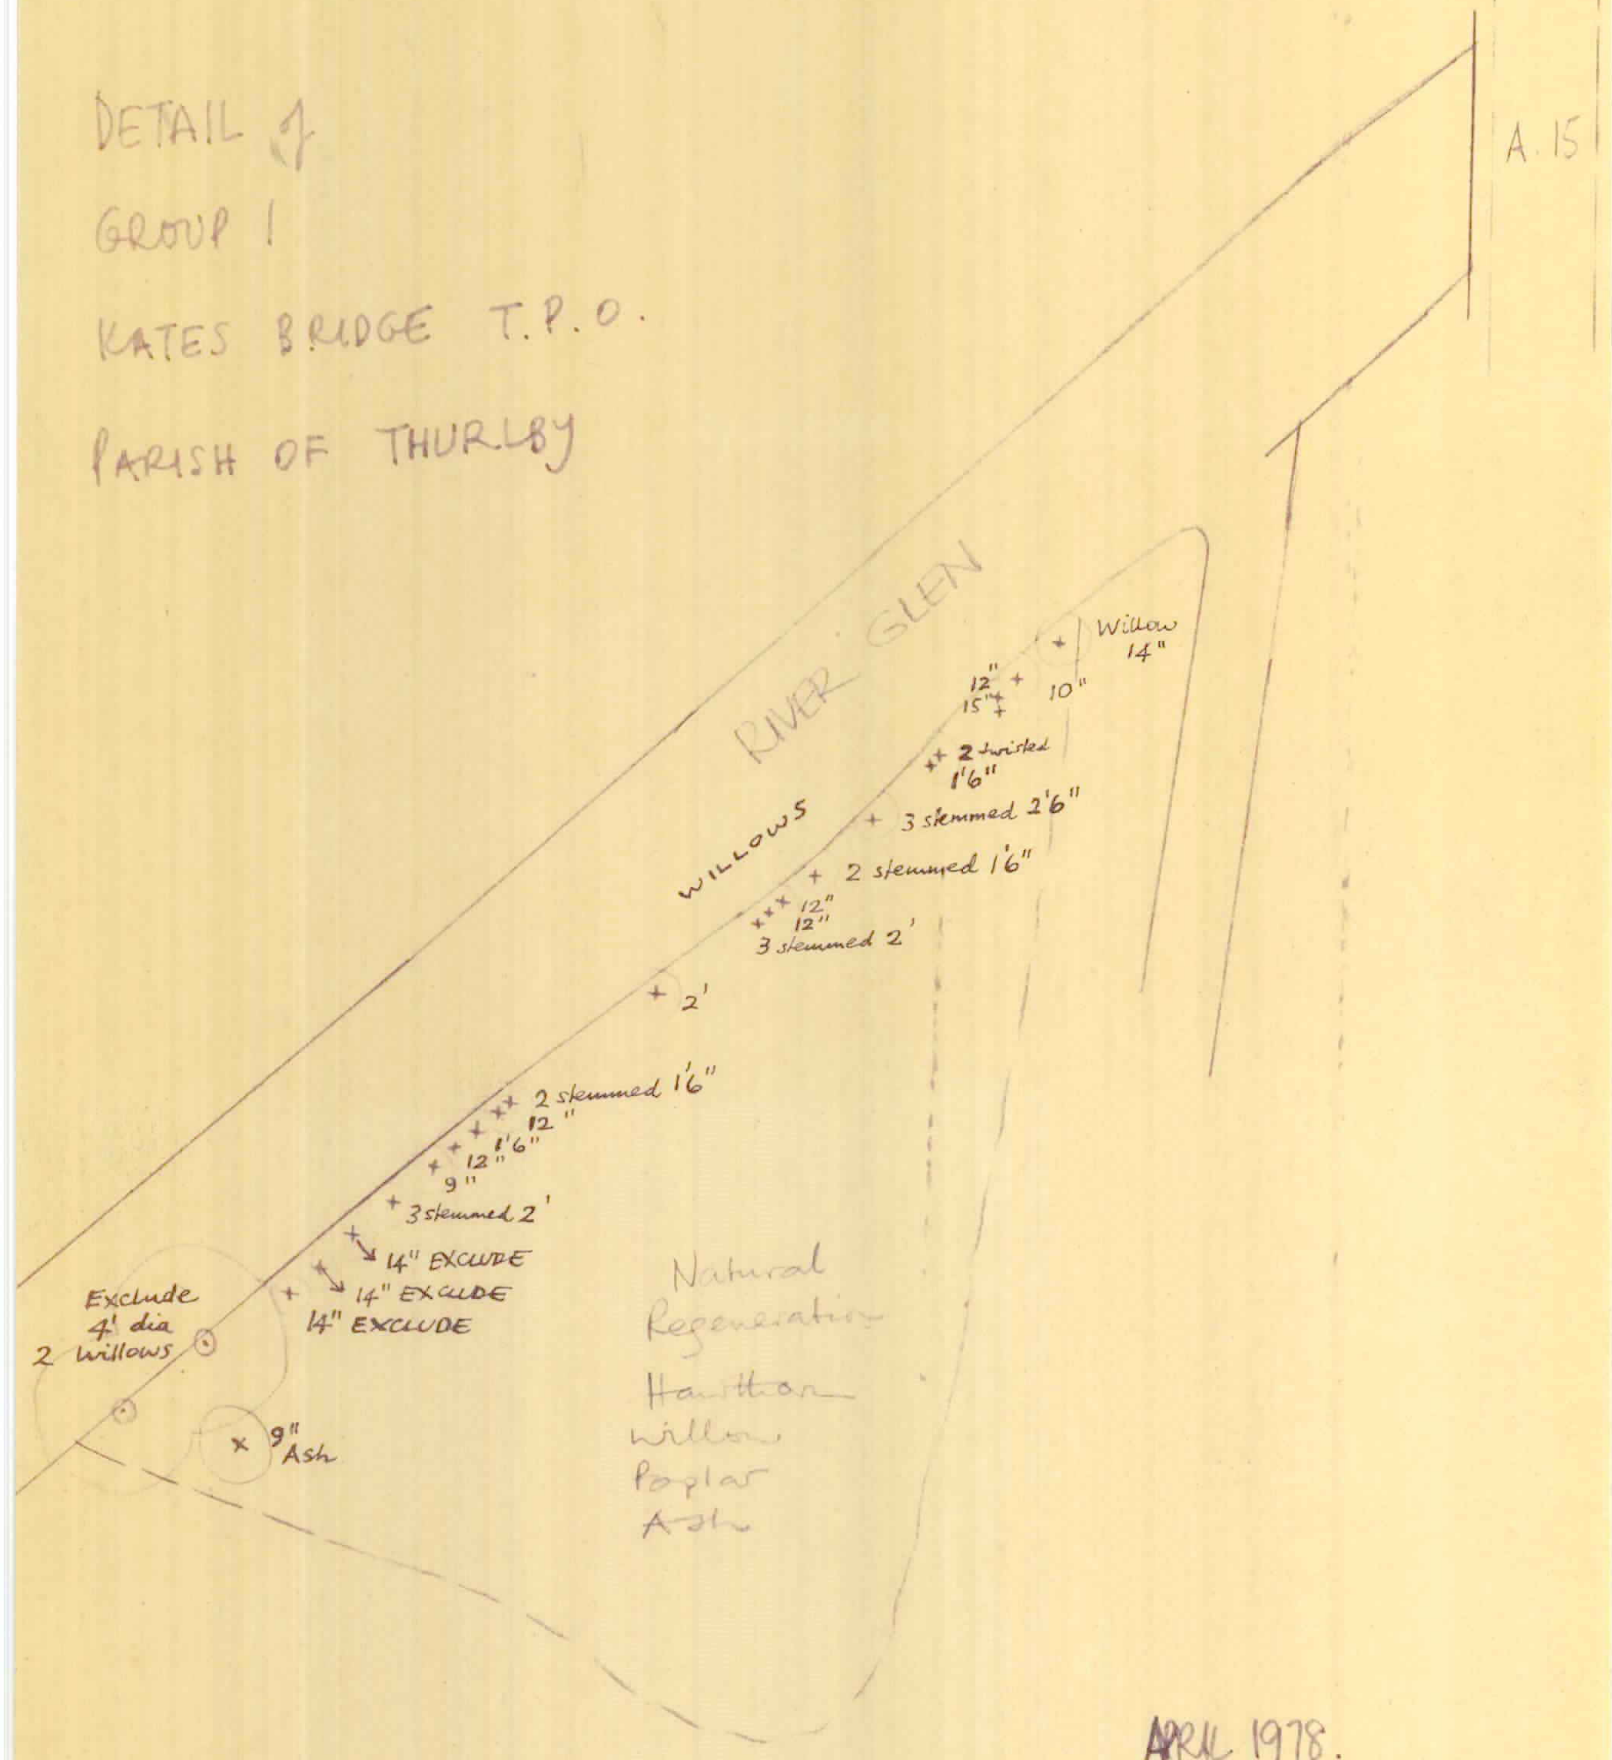 DETAIL of
GROUP 1
KATES BRIDGE T.P.O.
PARISH OF THURLBY
A.15
RIVER GLEN
WILLOWS
Willow
14"
10"
12"
15"
2 twisted
1'6"
3 stemmed 2'6"
2 stemmed 1'6"
12"
12"
3 stemmed 2'
2'
2 stemmed 1'6"
12"
1'6"
12"
9"
3 stemmed 2'
14" EXCLUDE
14" EXCLUDE
14" EXCLUDE
Exclude
4' dia
2 Willows
9"
Ash
Natural
Regeneration
Hawthorn
Willow
Poplar
Ash
APRIL 1978.